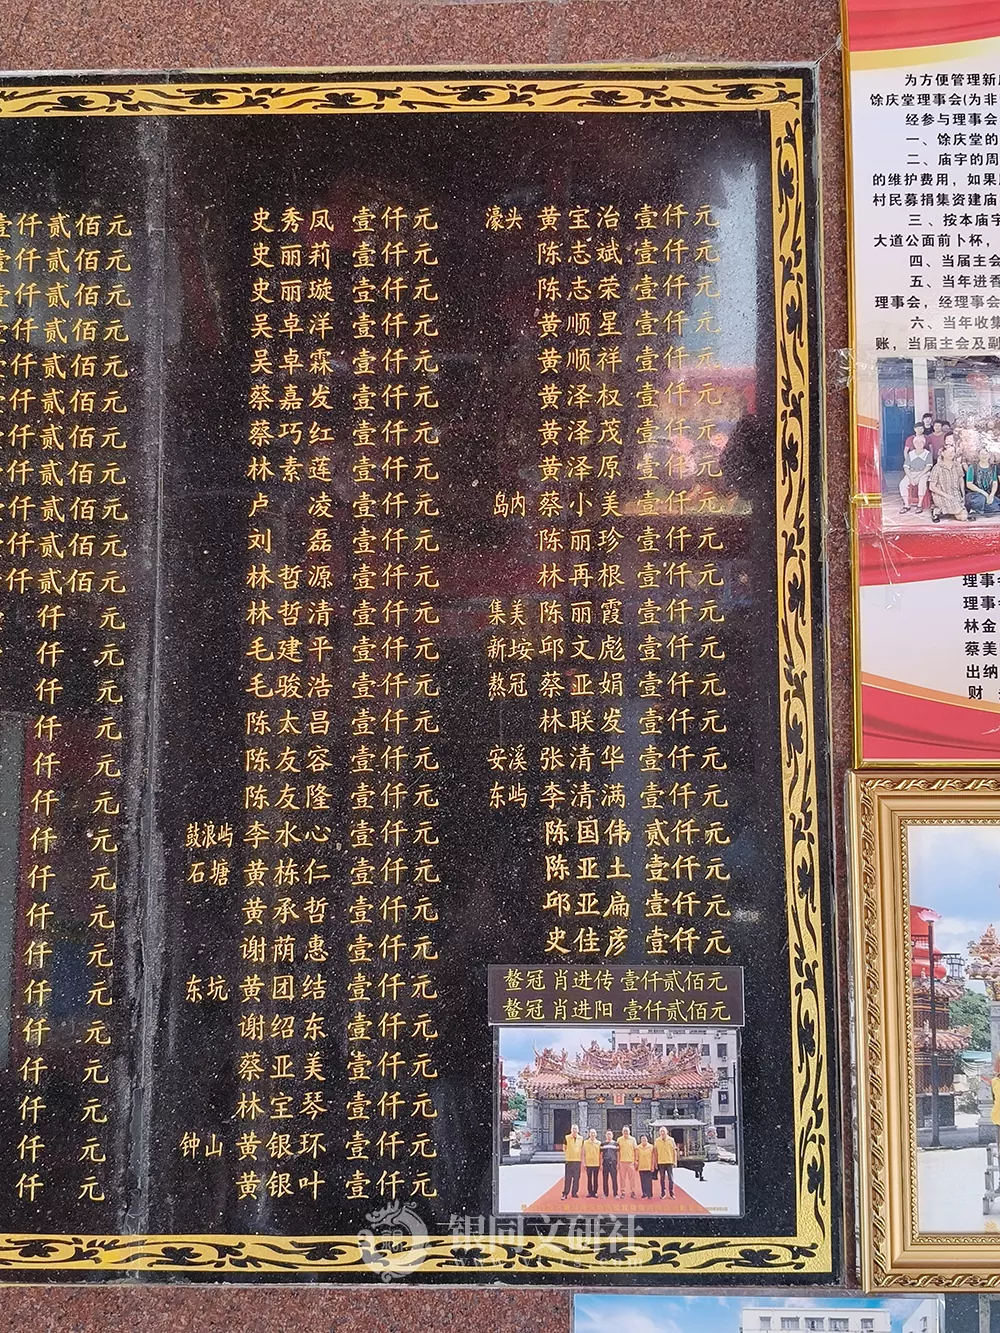 壹仟贰佰元
壹仟贰佰元
壹仟贰佰元
仟贰佰元
仟贰佰元
仟贰佰元
仟贰佰元
仟贰佰元
仟贰佰元
仟贰佰元
仟贰佰元
仟 元
仟 元
仟 元
仟 元
仟 元
仟 元
仟 元
仟 元
仟 元
仟 元
仟 元
仟 元
仟 元
仟 元
仟 元
仟 元
史秀凤 壹仟元
史丽莉 壹仟元
史丽璇 壹仟元
吴卓洋 壹仟元
吴卓霖 壹仟元
蔡嘉发 壹仟元
蔡巧红 壹仟元
林素莲 壹仟元
卢 凌 壹仟元
刘 磊 壹仟元
林哲源 壹仟元
林哲清 壹仟元
毛建平 壹仟元
毛骏浩 壹仟元
陈太昌 壹仟元
陈友容 壹仟元
陈友隆 壹仟元
鼓浪屿 李水心 壹仟元
石塘 黄栋仁 壹仟元
黄承哲 壹仟元
谢荫惠 壹仟元
东坑 黄团结 壹仟元
谢绍东 壹仟元
蔡亚美 壹仟元
林宝琴 壹仟元
钟山 黄银环 壹仟元
黄银叶 壹仟元
濠头 黄宝治 壹仟元
陈志斌 壹仟元
陈志荣 壹仟元
黄顺星 壹仟元
黄顺祥 壹仟元
黄泽权 壹仟元
黄泽茂 壹仟元
黄泽原 壹仟元
岛内 蔡小美 壹仟元
陈丽珍 壹仟元
林再根 壹仟元
集美 陈丽霞 壹仟元
新垵 邱文彪 壹仟元
熬冠 蔡亚娟 壹仟元
林联发 壹仟元
安溪 张清华 壹仟元
东屿 李清满 壹仟元
陈国伟 贰仟元
陈亚土 壹仟元
邱亚扁 壹仟元
史佳彦 壹仟元
鳌冠 肖进传 壹仟贰佰元
鳌冠 肖进阳 壹仟贰佰元
为方便管理新
馀庆堂理事会(为非
经参与理事会
一、馀庆堂的
二、庙宇的周
的维护费用，如果
村民募捐集资建庙
三、按本庙宇
大道公面前卜杯，
四、当届主会
五、当年进香
理事会，经理事会
六、当年收集
账，当届主会及副
理事会
理事会
林金
蔡美
出纳
财
银同文研社